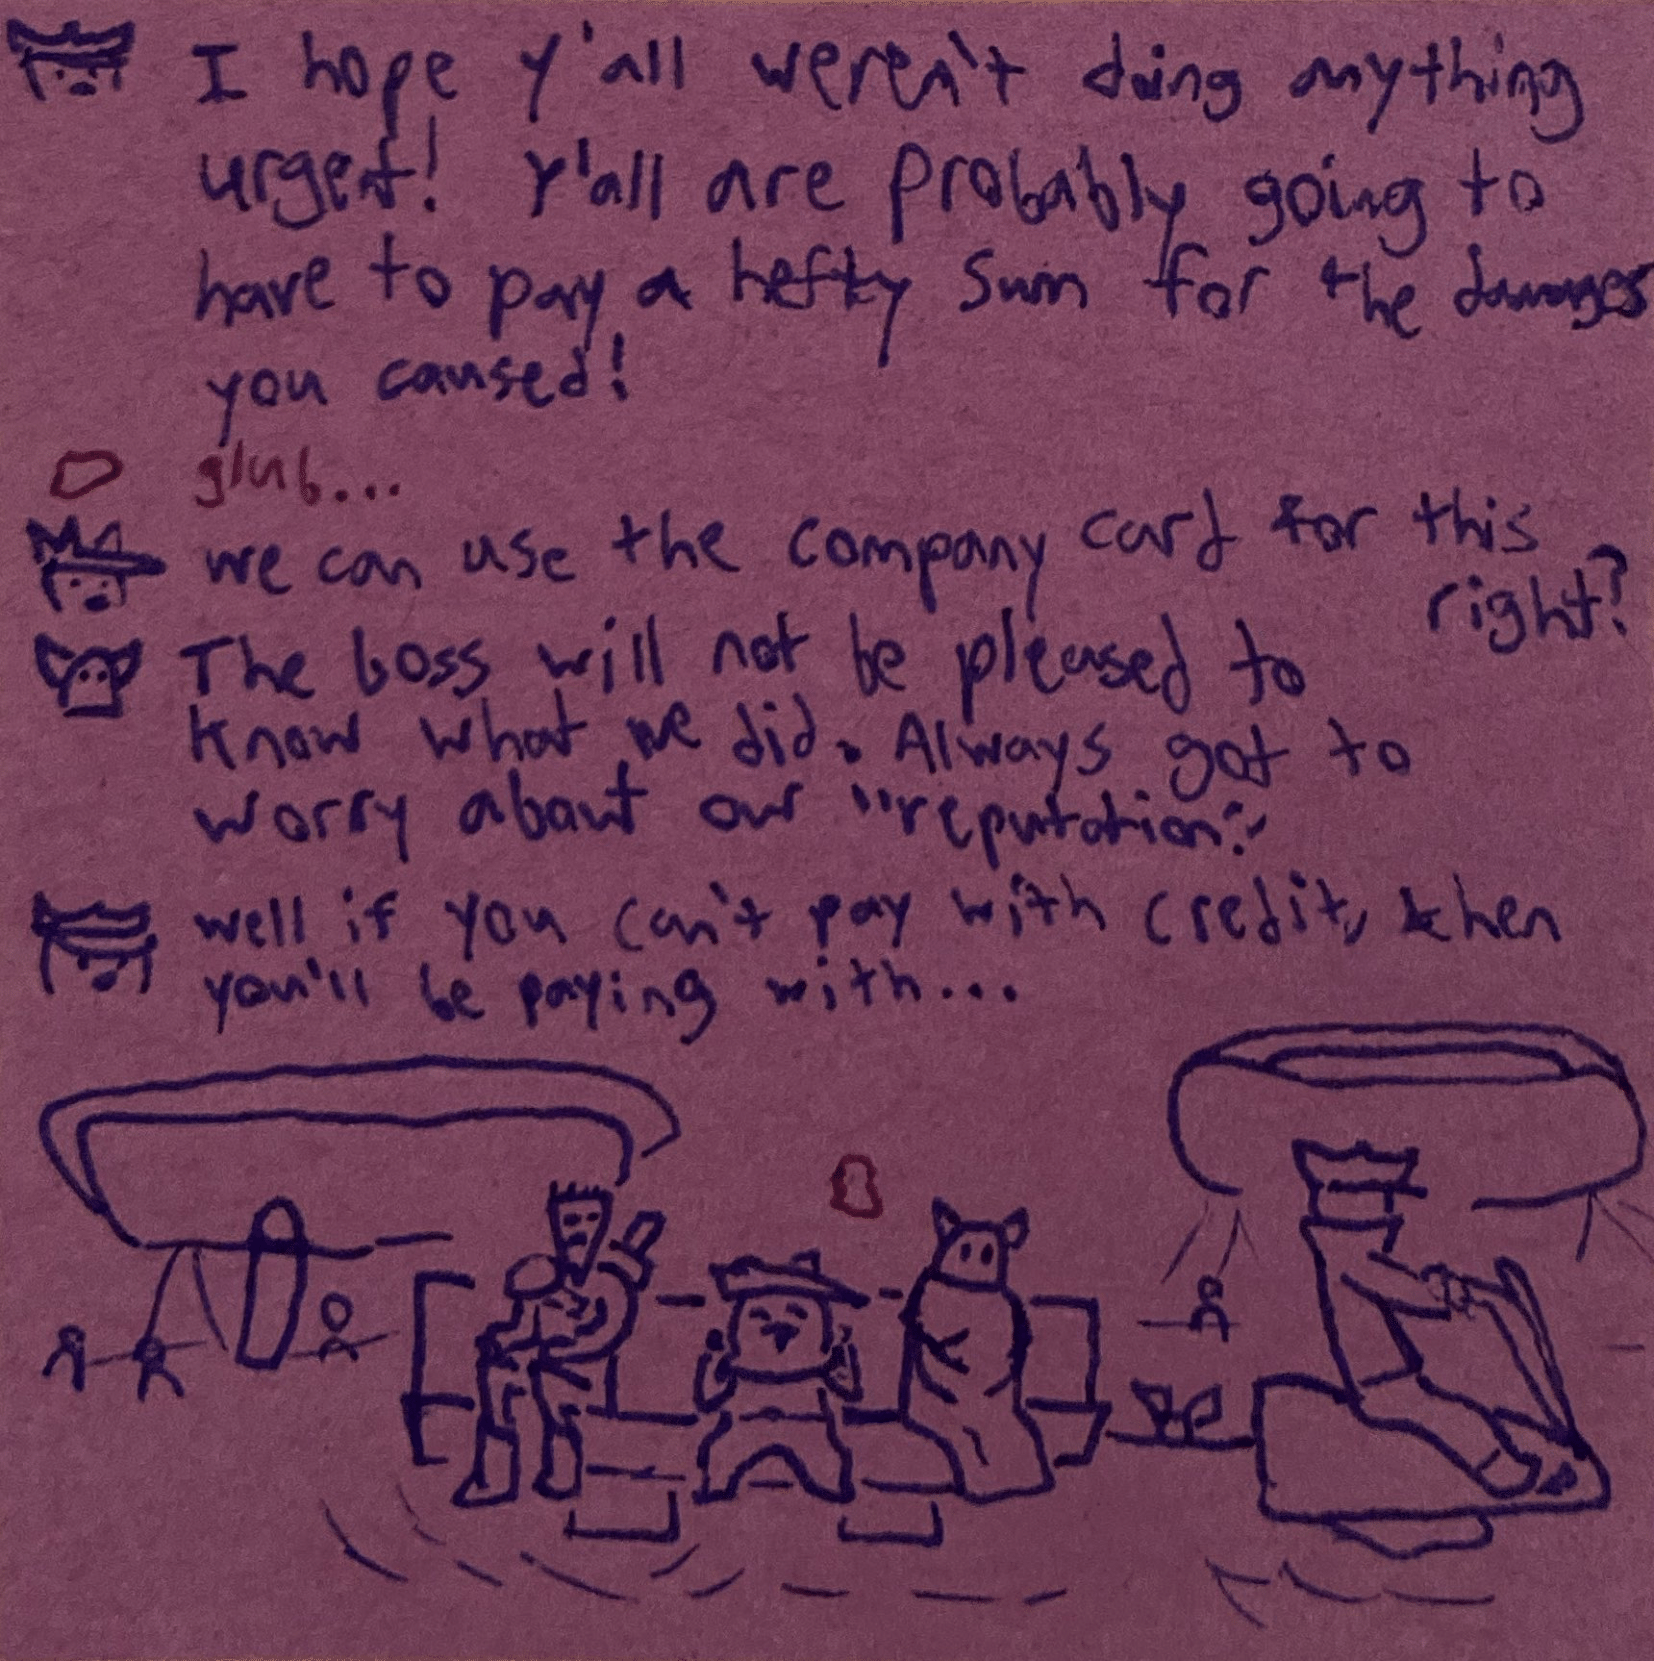 I hope y'all weren't doing anything
urgent! Y'all are probably going to
have to pay a hefty sum for the damages
you caused!
glub...
we can use the company card for this
right?
The boss will not be pleased to
know what we did. Always got to
worry about our "reputation".
well if you can't pay with credit, then
you'll be paying with...